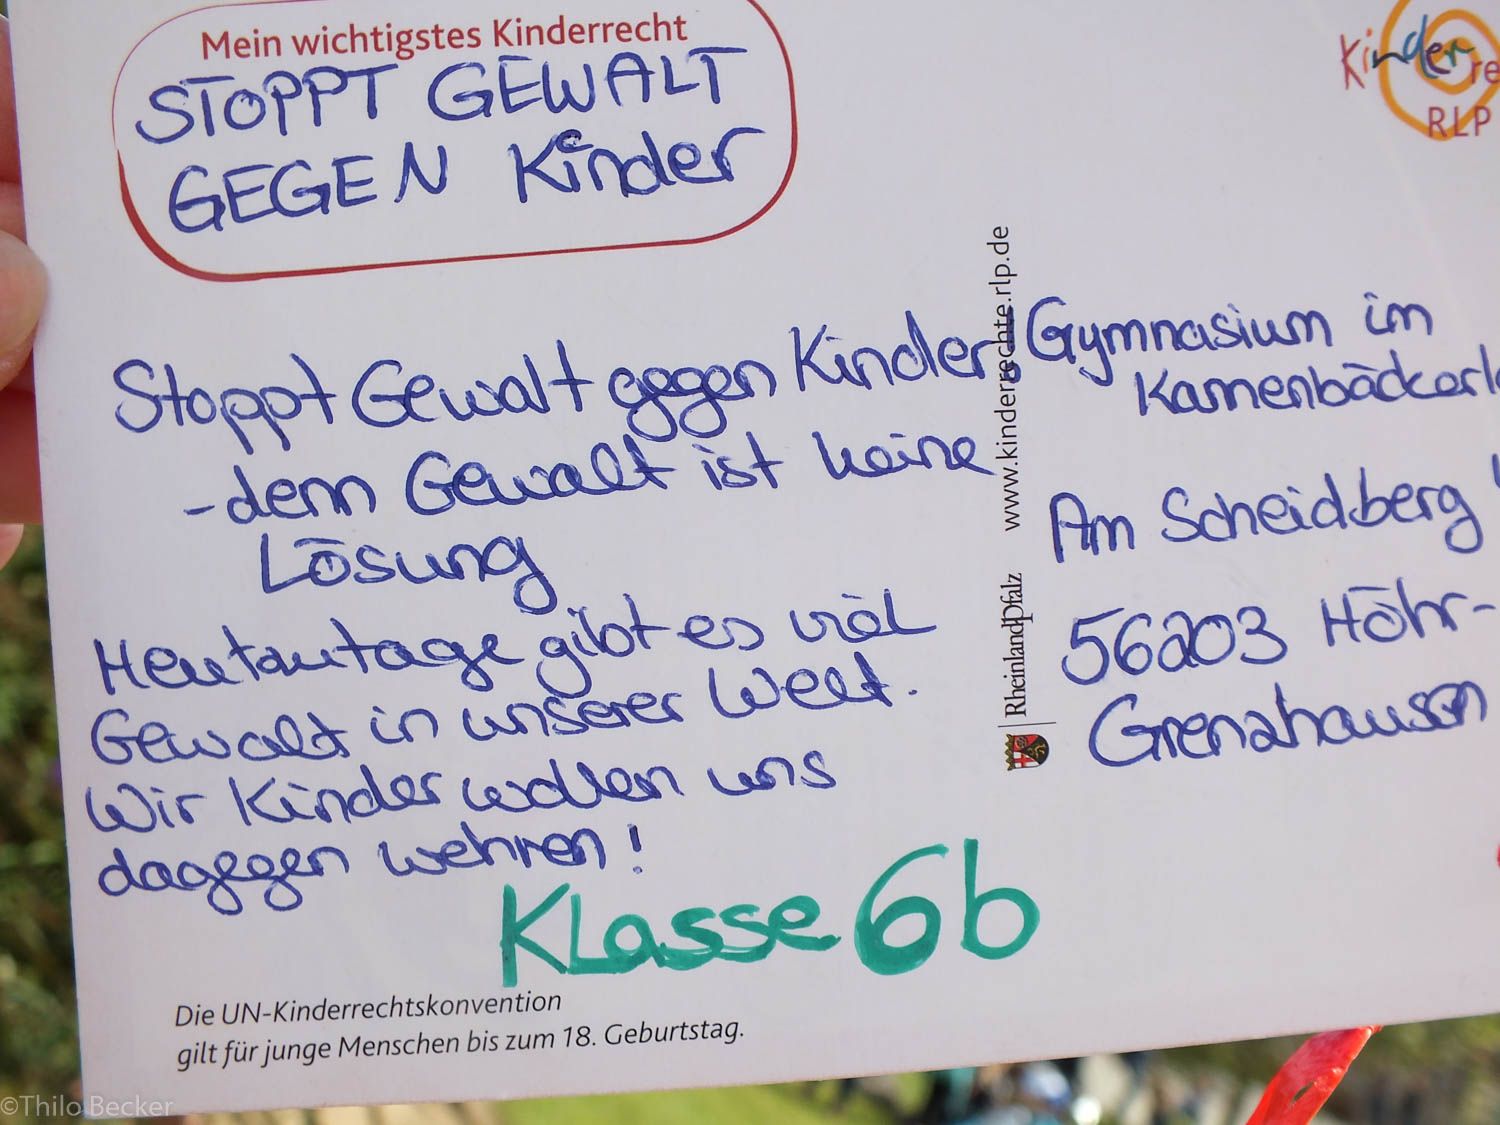 Mein wichtigstes Kinderrecht
STOPPT GEWALT
GEGEN Kinder
Stoppt Gewalt gegen Kinder,
-denn Gewalt ist keine
Lösung
Heutzutage gibt es viel
Gewalt in unserer Welt.
Wir Kinder wollen uns
dagegen wehren!
Klasse 6b
Die UN-Kinderrechtskonvention
gilt für junge Menschen bis zum 18. Geburtstag.
www.kinderrechte.rlp.de
RheinlandPfalz
Kinderre
RLP
Gymnasium im
Kannenbäckerla
Am Scheidberg
56203 Höhr-
Grenzhausen
©Thilo Becker